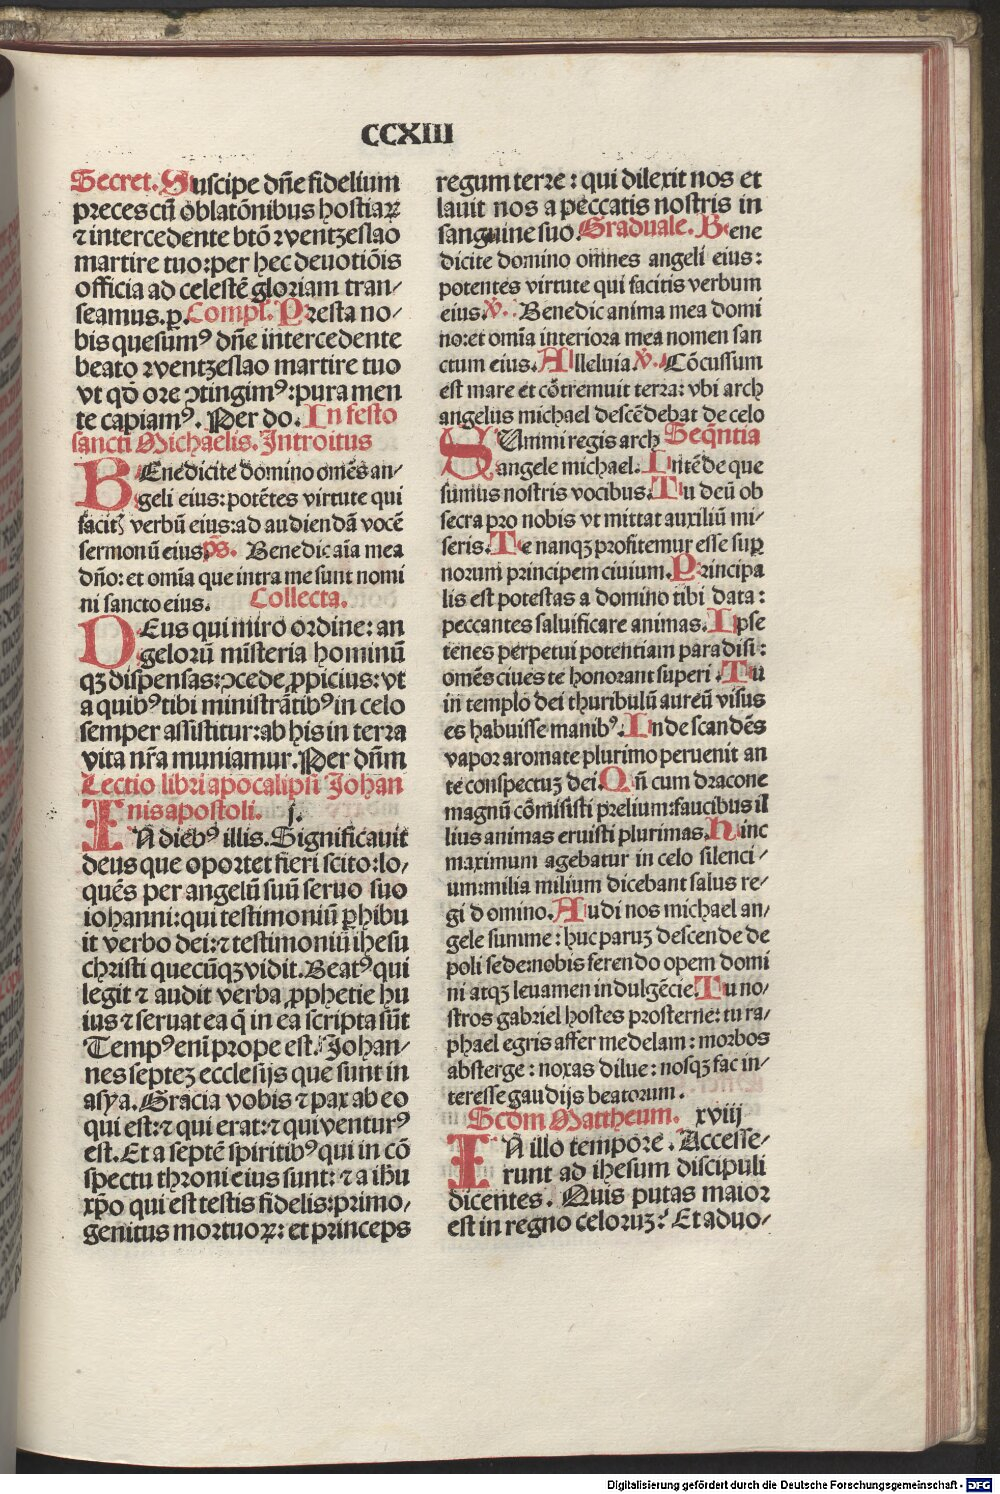 CCXIII
Secret. Suscipe dn̄e fidelium
preces cū oblatōnibus hostiaꝝ
⁊ intercedente btō ꝛventzeslao
martire tuo: per hec deuotiōis
officia ad celestē gloriam tran⸗
seamus. p. Compl. Presta no⸗
bis quesumꝰ dn̄e intercedente
beato ꝛventzeslao martire tuo
vt qd̄ ore ꝯtingimꝰ: pura men
te capiamꝰ. Per do. In festo
sancti Michaelis. Introitus
BEnedicite domino omēs an⸗
geli eius: potētes virtute qui
facitꝭ verbū eius: ad audiendā vocē
sermonū eius. p̄s. Benedic aīa mea
dn̄o: et omīa que intra me sunt nomi
ni sancto eius. Collecta.
DEus qui miro ordine: an
gelorū misteria hominū
qꝫ dispensas: ꝯcede ꝓpicius: vt
a quibꝰ tibi ministrātibꝰ in celo
semper assistitur: ab his in terra
vita nr̄a muniamur. Per dn̄m
Lectio libri apocalipsi Johan
nis apostoli. j.
IN diebꝰ illis. Significauit
deus que oportet fieri scito: lo⸗
quēs per angelū suū seruo suo
iohanni: qui testimoniū ꝑhibu
it verbo dei: ⁊ testimoniū ihesu
christi quecūqꝫ vidit. Beatꝰ qui
legit ⁊ audit verba ꝓphetie hu
ius ⁊ seruat ea q̄ in ea scripta sūt
Tempꝰ enī prope est. Johan⸗
nes septeꝫ ecclesijs que sunt in
asya. Gracia vobis ⁊ pax ab eo
qui est: ⁊ qui erat: ⁊ qui venturꝰ
est. Et a septē spiritibꝰ qui in cō
spectu throni eius sunt: ⁊ a ihū
xp̄o qui est testis fidelis: primo⸗
genitus mortuoꝝ: et princeps
regum terre: qui dilexit nos et
lauit nos a peccatis nostris in
sanguine suo. Graduale. Bene
dicite domino omnes angeli eius:
potentes virtute qui facitis verbum
eius. v̄. Benedic anima mea domi
no: et omīa interiora mea nomen san
ctum eius. Alleluia. v̄. Cōcussum
est mare et cōtremuit terra: vbi arch
angelus michael descēdebat de celo
SUmmi regis arch Seqn̄tia
angele michael. Intēde que
sumus nostris vocibus. Tu deū ob
secra pro nobis vt mittat auxiliū mi⸗
seris. Te nanqꝫ profitemur esse suꝑ
norum principem ciuium. Principa
lis est potestas a domino tibi data:
peccantes saluificare animas. Ipse
tenes perpetui potentiam paradisi:
omēs ciues te honorant superi. Tu
in templo dei thuribulū aureū visus
es habuisse manibꝰ. Inde scandēs
vapor aromate plurimo peruenit an
te conspectuꝫ dei. Qn̄ cum dracone
magnū cōmisisti prelium: faucibus il
lius animas eruisti plurimas. Hinc
maximum agebatur in celo silenci⸗
um: milia milium dicebant salus re⸗
gi domino. Audi nos michael an⸗
gele summe: huc paruꝫ descende de
poli sede: nobis ferendo opem domi
ni atqꝫ leuamen indulgēcie. Tu no⸗
stros gabriel hostes prosterne: tu ra⸗
phael egris affer medelam: morbos
absterge: noxas dilue: nosqꝫ fac in⸗
teresse gaudijs beatorum.
Scd̄m Mattheum. xviij
IN illo tempore. Accesse⸗
runt ad ihesum discipuli
dicentes. Quis putas maior
est in regno celoruꝫ? Et aduo⸗
Digitalisierung gefördert durch die Deutsche Forschungsgemeinschaft - DFG